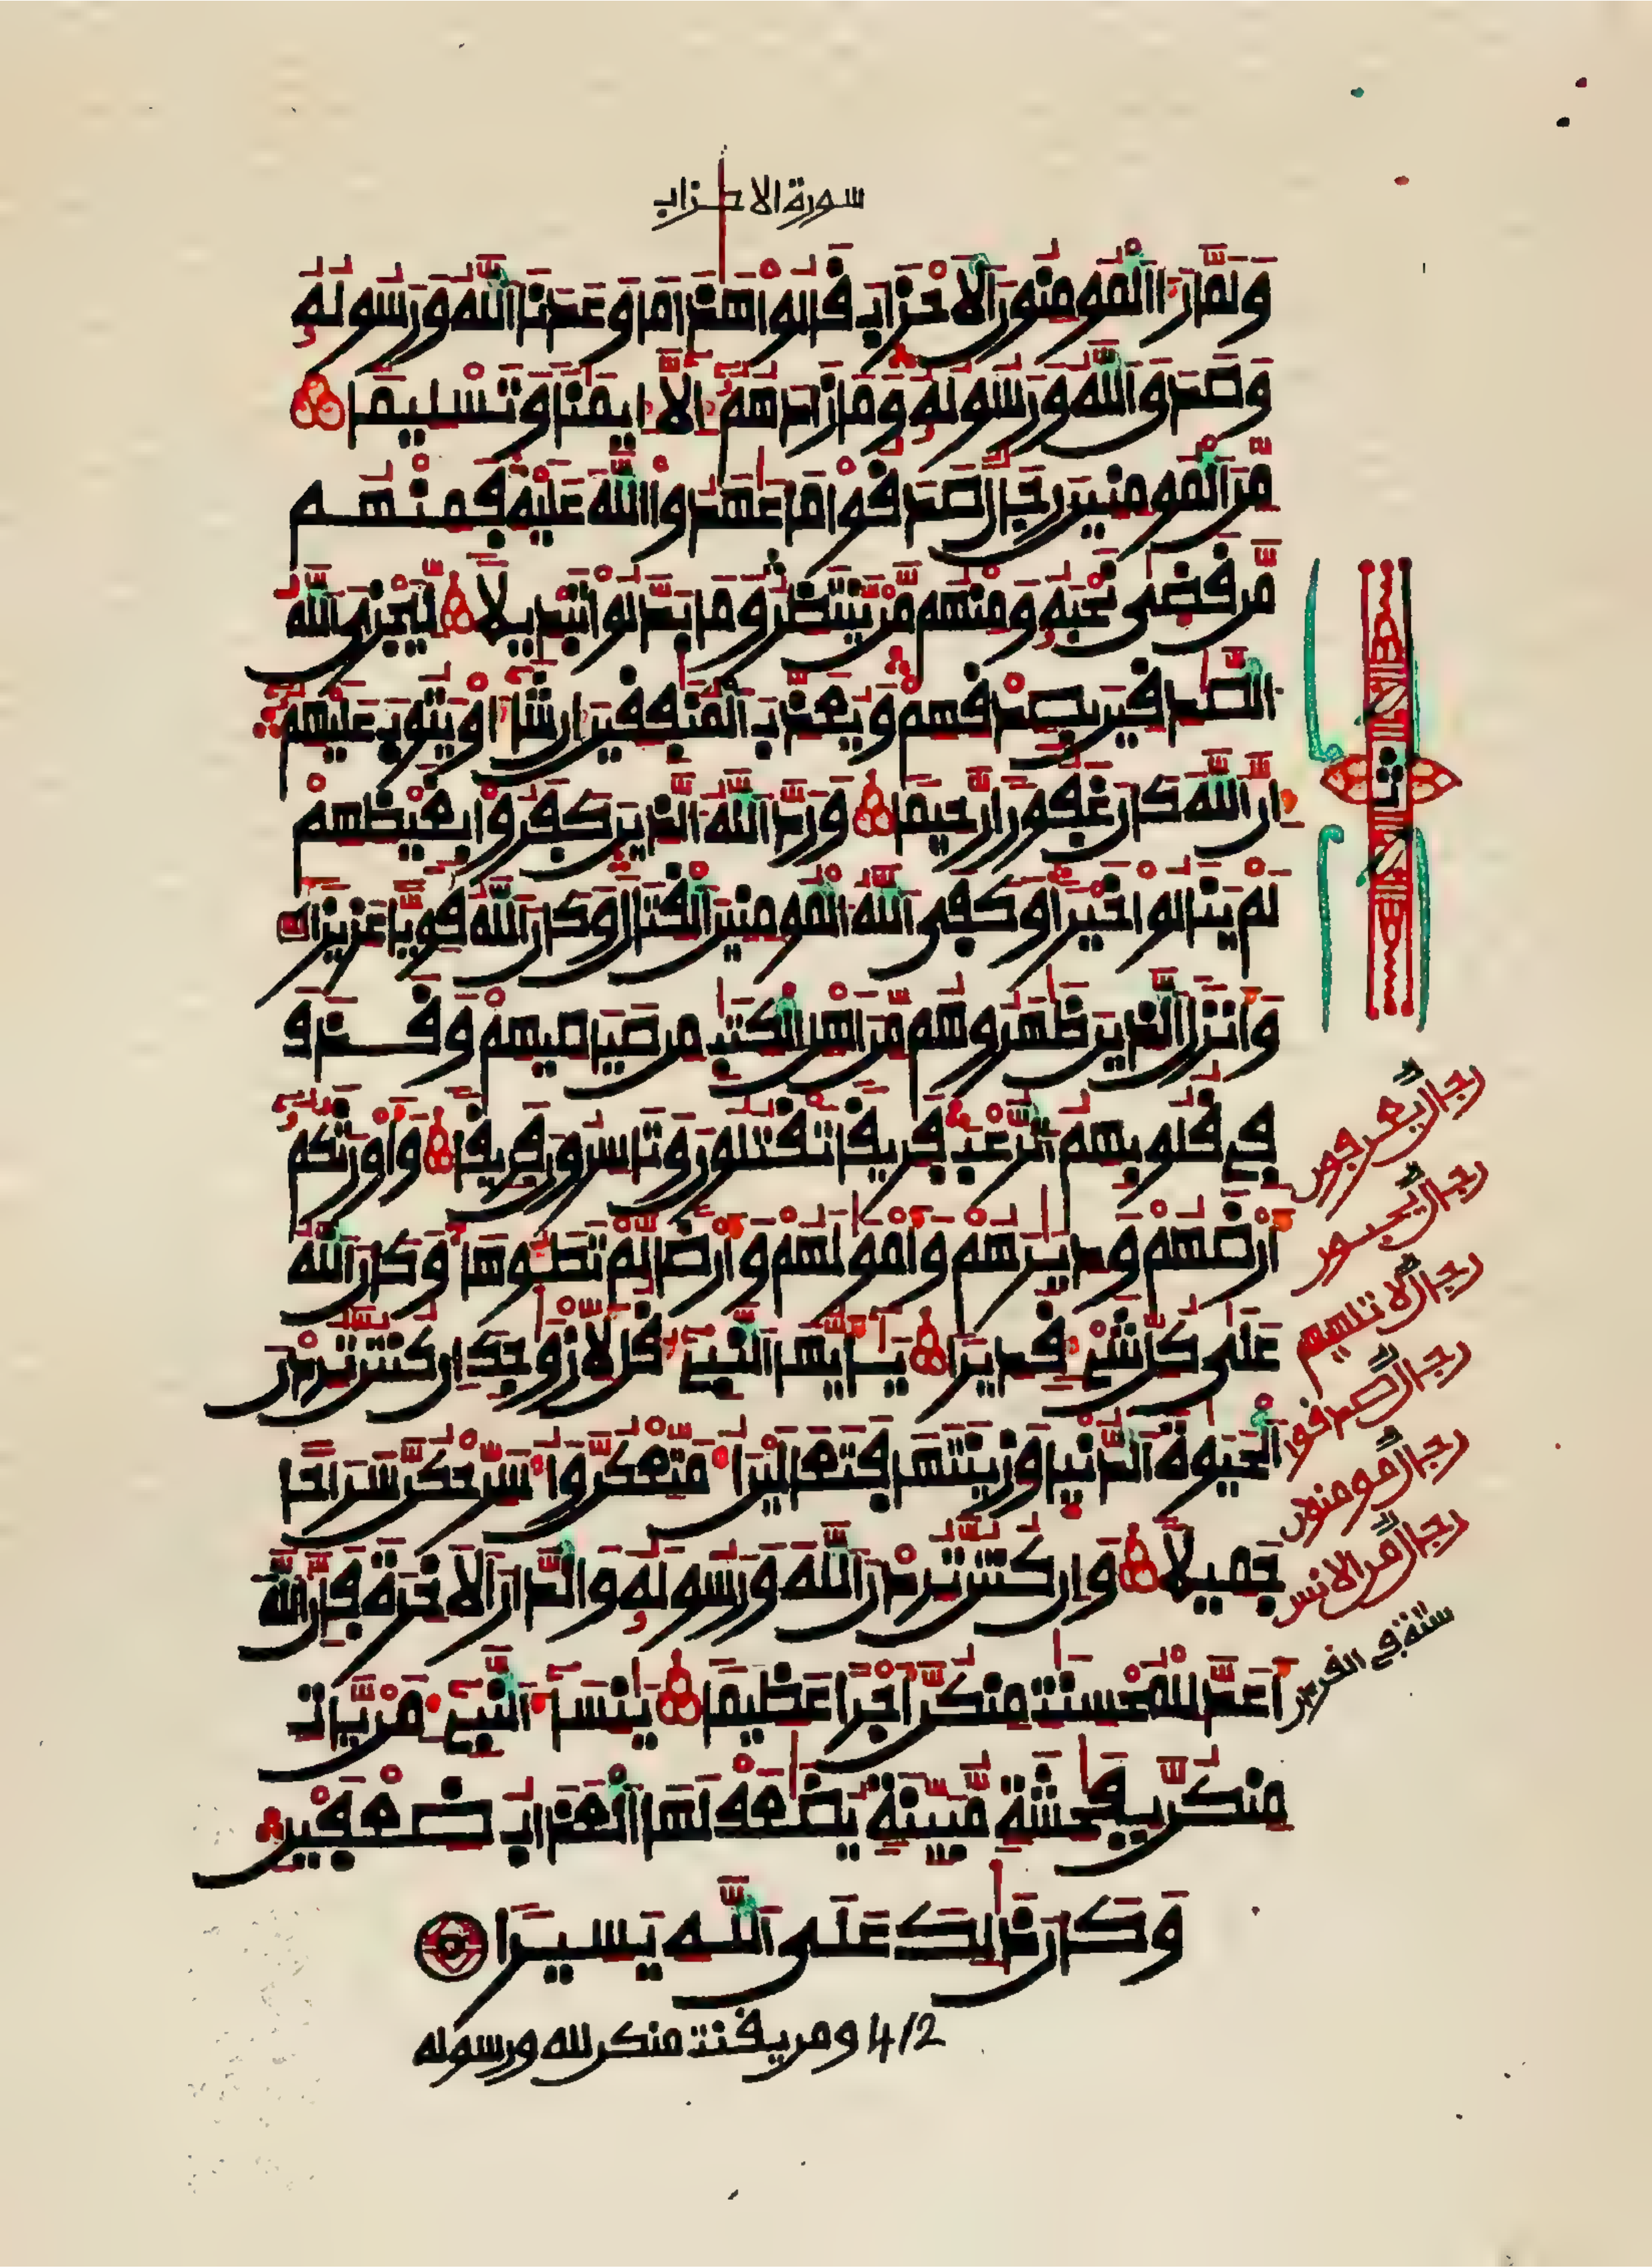 سورة الاحزاب
وَلَمَّا رَءَا اَلْمُومِنُونَ اَلَاحْزَابَ قَالُواْ هَٰذَا مَا وَعَدَنَا اَللَّهُ وَرَسُولُهُۥ
وَصَدَقَ اَللَّهُ وَرَسُولُهُۥ وَمَا زَادَهُمُۥٓ إِلَّآ إِيمَٰنًا وَتَسْلِيمًا
مِّنَ اَلْمُومِنِينَ رِجَالٌ صَدَقُواْ مَا عَٰهَدُواْ اُللَّهَ عَلَيْهِ فَمِنْهُم
مَّن قَضَىٰ نَحْبَهُۥ وَمِنْهُم مَّنْ يَّنتَظِرُ وَمَا بَدَّلُواْ تَبْدِيلًا لِّيَجْزِيَ اَللَّهُ
اُلصَّٰدِقِينَ بِصِدْقِهِمْ وَيُعَذِّبَ اَلْمُنَٰفِقِينَ إِن شَآءَ اَوْ يَتُوبَ عَلَيْهِمُۥٓ
إِنَّ اَللَّهَ كَانَ غَفُورًا رَّحِيمًا وَرَدَّ اَللَّهُ اُلذِينَ كَفَرُواْ بِغَيْظِهِمْ
لَمْ يَنَالُواْ خَيْرًا وَكَفَى اَللَّهُ اُلْمُومِنِينَ اَلْقِتَالَ وَكَانَ اَللَّهُ قَوِيًّا عَزِيزًا
وَأَنزَلَ اَلذِينَ ظَٰهَرُوهُم مِّنَ اَهْلِ اِلْكِتَٰبِ مِن صَيَاصِيهِمْ وَقَذَفَ
فِي قُلُوبِهِمُ اُلرُّعْبَ فَرِيقًا تَقْتُلُونَ وَتَاسِرُونَ فَرِيقًا وَأَوْرَثَكُمُۥٓ
أَرْضَهُمْ وَدِيَٰرَهُمْ وَأَمْوَٰلَهُمْ وَأَرْضًا لَّمْ تَطَـُٔوهَا وَكَانَ اَللَّهُ
عَلَىٰ كُلِّ شَيْءٍ قَدِيرًا يَٰٓأَيُّهَا اَلنَّبِيٓءُ قُل لِّأَزْوَٰجِكَ إِن كُنتُنَّ تُرِدْنَ
اَلْحَيَوٰةَ اَلدُّنْيَا وَزِينَتَهَا فَتَعَالَيْنَ أُمَتِّعْكُنَّ وَأُسَرِّحْكُنَّ سَرَاحًا
جَمِيلًا وَإِن كُنتُنَّ تُرِدْنَ اَللَّهَ وَرَسُولَهُۥ وَالدَّارَ اَلَاخِرَةَ فَإِنَّ اَللَّهَ
أَعَدَّ لِلْمُحْسِنَٰتِ مِنكُنَّ أَجْرًا عَظِيمًا يَٰنِسَآءَ اَلنَّبِيٓءِ مَنْ يَّاتِ
مِنكُنَّ بِفَٰحِشَةٍ مُّبَيِّنَةٍ يُضَٰعَفْ لَهَا اَلْعَذَابُ ضِعْفَيْنِ
وَكَانَ ذَٰلِكَ عَلَى اَللَّهِ يَسِيرًا
4/2 ومن يقنت منكن لله ورسوله
رجال يعرفون
رجال يحبون
رجال لا تلهيهم
رجال صدقوا
رجال مومنون
رجال من الانس
ستة في القرءان